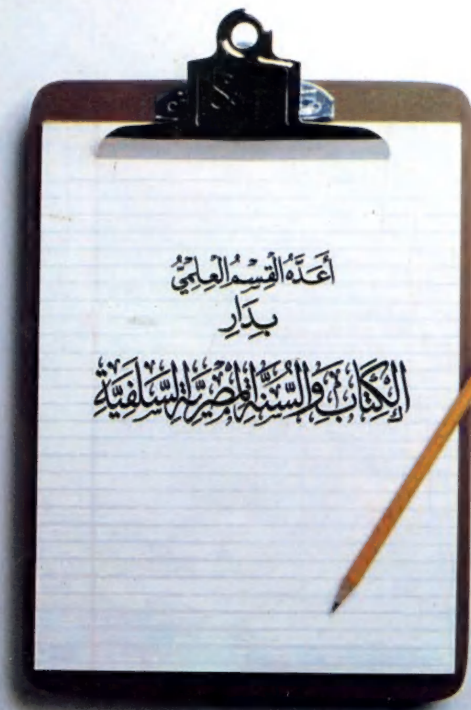 أَعَدَّهُ الْقِسْمُ الْعِلْمِيُّ
بِدَارِ
الْكِتَابِ وَالسُّنَّةِ الْمِصْرِيَّةِ السَّلَفِيَّةِ